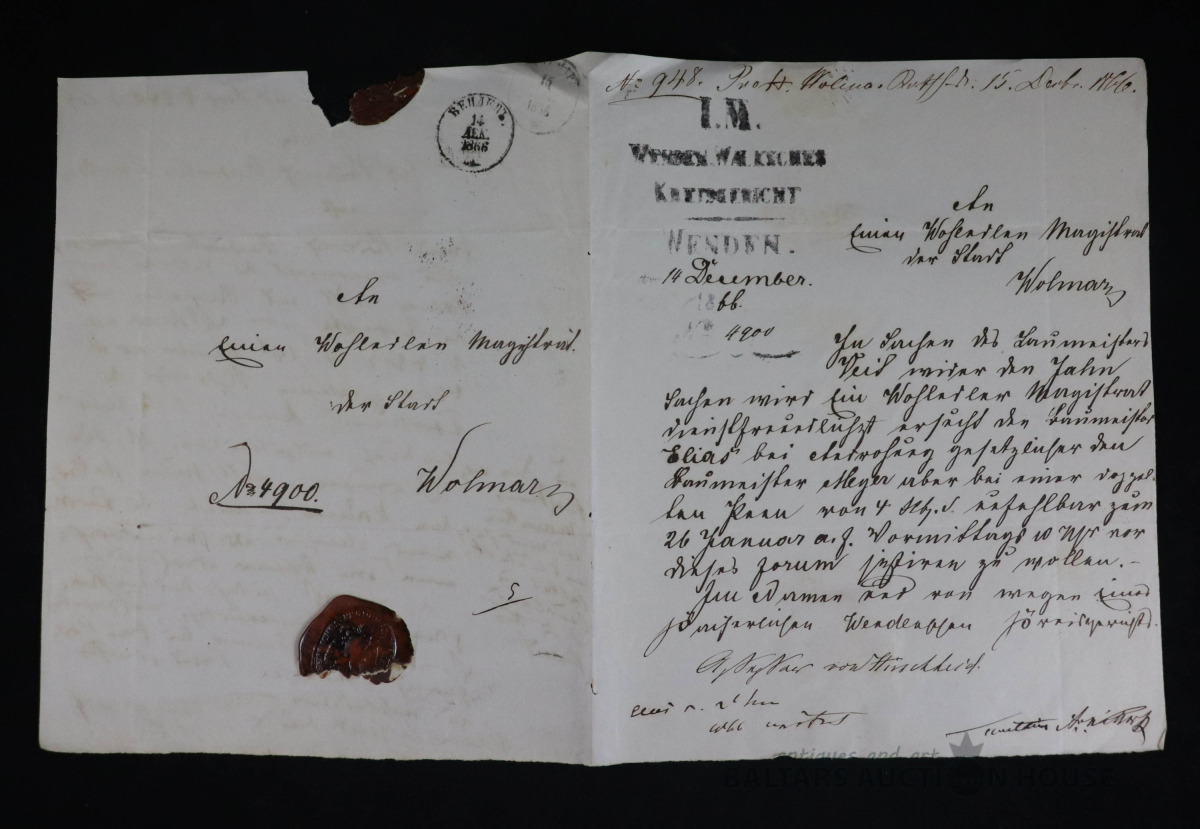 ВЕНДЕНЪ.
14
ДЕК.
1866
15
An
Einen Wohledlen Magistrat
der Stadt
Wolmar
№ 4900.
№ 948. Prod. Wolmar. Rathh. d. 15. Decbr. 1866.
I. M.
WENDEN-WALKSCHES
KREISGERICHT
WENDEN.
14 December.
1866.
№ 4900
An
Einen Wohledlen Magistrat
der Stadt
Wolmar
In Sachen des Baumeisters
Veit wider den Jahn
Sachen wird Ein Wohledler Magistrat
dienstfreundlichst ersucht den Baumeister
Elias bei Androhung gesetzlicher den
Baumeister Meyer aber bei einer doppel-
ten Poen von 4 Rbl. S. unfehlbar zum
26 Januar a. f. Vormittags 10 Uhr vor
dieses Forum sistiren zu wollen.-
Im Namen und von wegen Eines
Kaiserlichen Wendenschen Kreisgerichts.
Assessor von
antiques and art
BALTARS AUCTION HOUSE